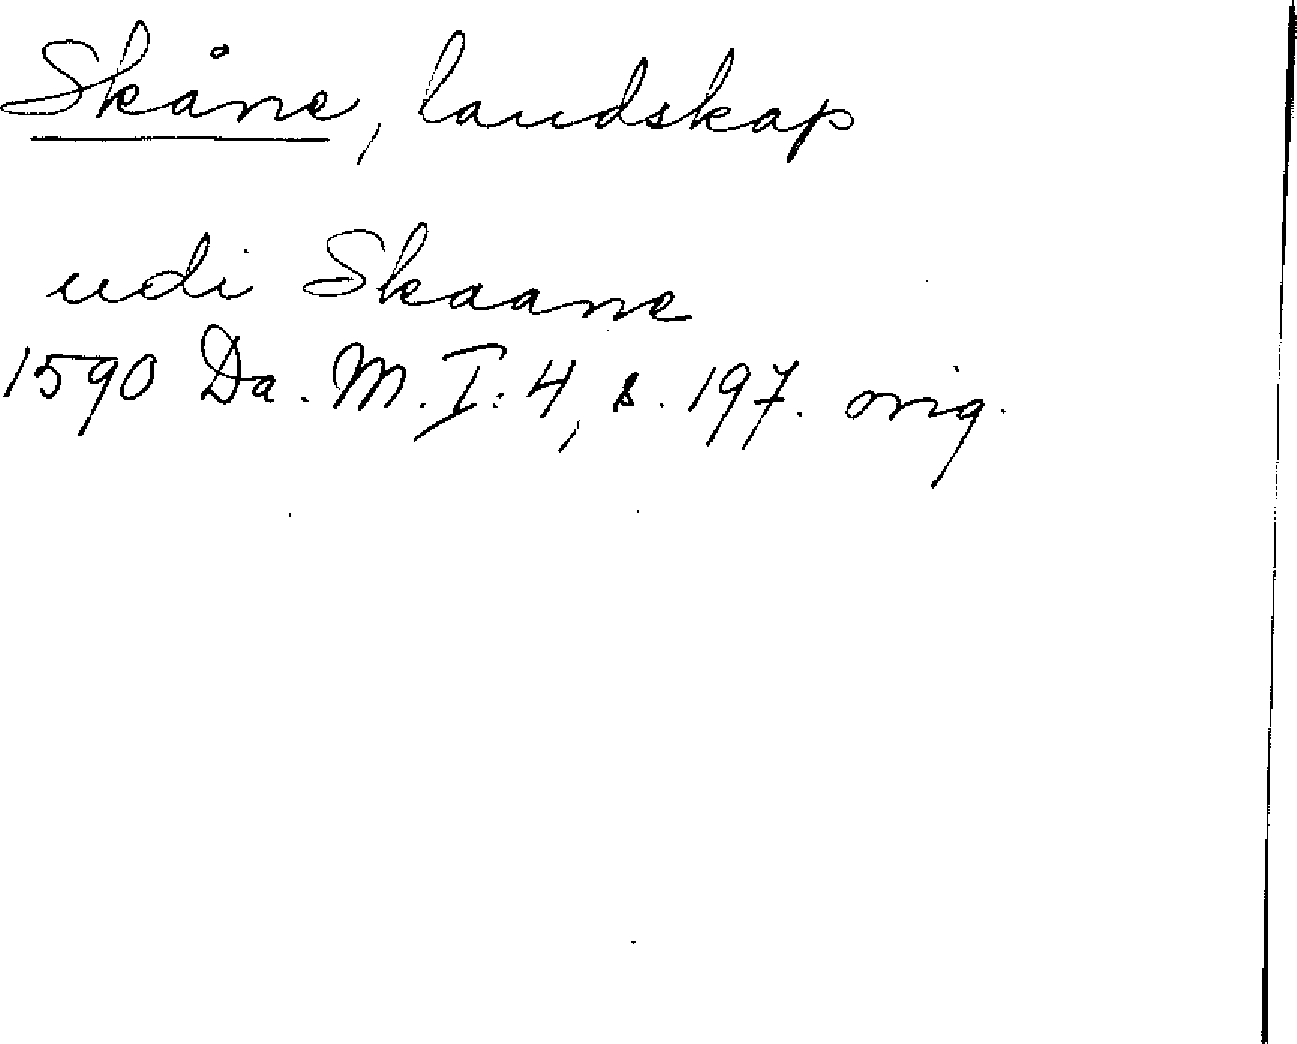 Skåne, landskap
udi Skaane
1590 Da. M. I: 4, s. 197. orig.